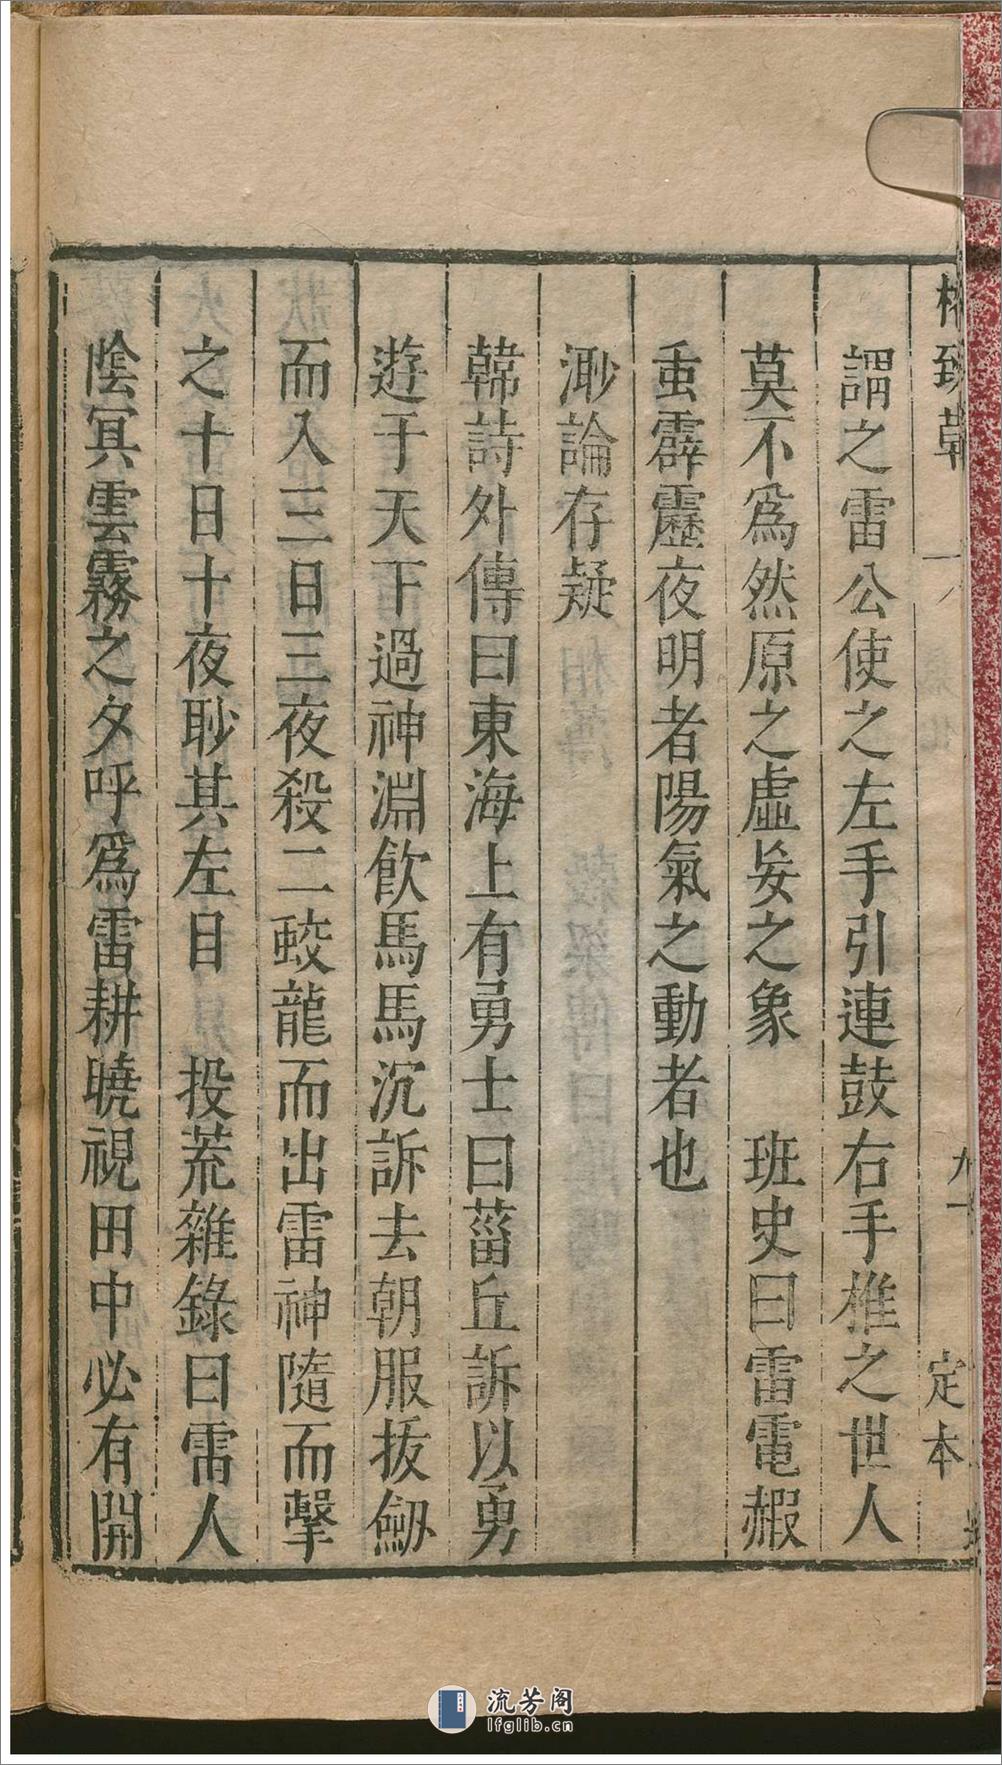 格致草 一 九十 定本
謂之雷公使之左手引連鼓右手椎之世人
莫不爲然原之虛妄之象 班史曰雷電赮
䖝霹靂夜明者陽氣之動者也
渺論存疑
韓詩外傳曰東海上有勇士曰菑丘訴以勇
遊于天下過神淵飮馬馬沉訴去朝服拔劒
而入三日三夜殺二蛟龍而出雷神隨而擊
之十日十夜眇其左目 投荒雜錄曰雷人
陰冥雲霧之夕呼爲雷耕曉視田中必有開
流芳阁
lfglib.cn